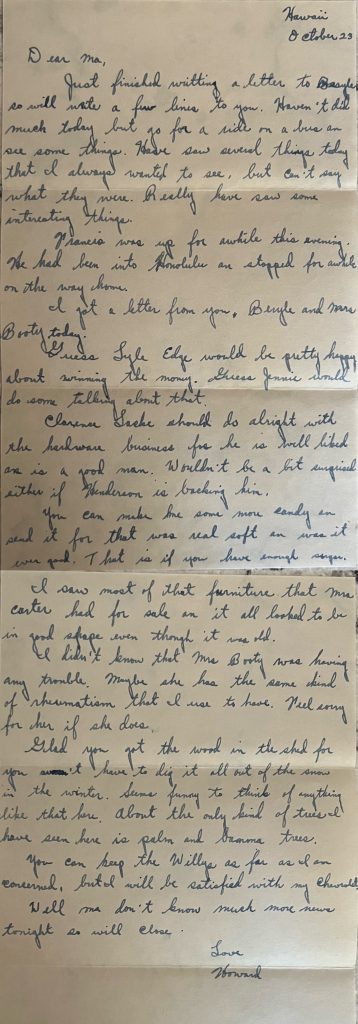 Hawaii
October 23
Dear Ma,
Just finished writting a letter to Beryle
so will write a few lines to you. Haven't did
much today but go for a ride on a bus an
see some things. Have saw several things today
that I always wanted to see, but can't say
what they were. Really have saw some
interesting things.
Francis was up for awhile this evening.
He had been into Honolulu an stopped for awhile
on the way home.
I got a letter from you, Beryle and Mrs
Booty today.
Guess Lyle Edge would be pretty happy
about winning the money. Guess Jennie would
do some talking about that.
Clarence should do alright with
the hardware business for he is well liked
an is a good man. Wouldn't be a bit surprised
either if Henderson is backing him.
You can make me some more candy an
send it for that was real soft an was it
ever good. That is if you have enough sugar.
I saw most of that furniture that Mrs
Carter had for sale an it all looked to be
in good shape even though it was old.
I didn't know that Mrs Booty was having
any trouble. Maybe she has the same kind
of rheumatism that I use to have. Feel sorry
for her if she does.
Glad you got the wood in the shed for
you won't have to dig it all out of the snow
in the winter. Seems funny to think of anything
like that here. About the only kind of trees I
have seen here is palm and banana trees.
You can keep the Willys as far as I am
conserned, but I will be satisfied with my Chevrolet.
Well ma don't know much more news
tonight so will close.
Love
Howard